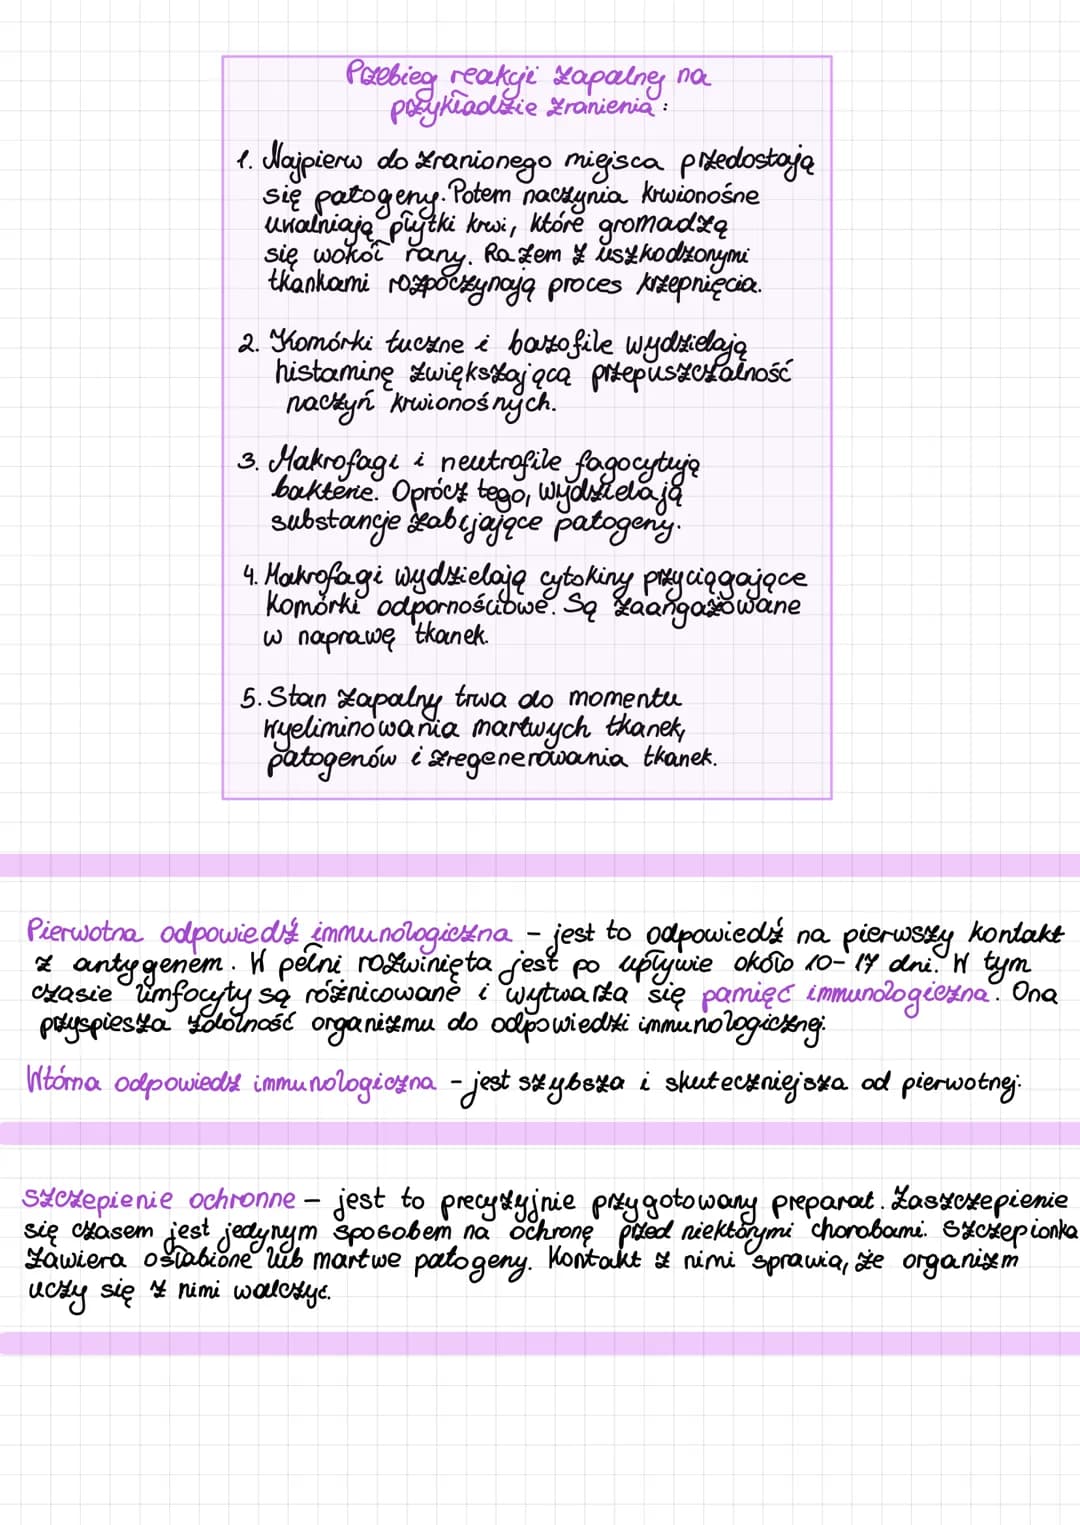 Przebieg reakcji zapalnej na
przykładzie zranienia :
1. Najpierw do zranionego miejsca przedostają
się patogeny. Potem naczynia krwionośne
uwalniają płytki krwi, które gromadzą
się wokół rany. Razem z uszkodzonymi
tkankami rozpoczynają proces krzepnięcia.
2. Komórki tuczne i bazofile wydzielają
histaminę zwiększającą przepuszczalność
naczyń krwionośnych.
3. Makrofagi i neutrofile fagocytują
bakterie. Oprócz tego, wydzielają
substancje zabijające patogeny.
4. Makrofagi wydzielają cytokiny przyciągające
komórki odpornościowe. Są zaangażowane
w naprawę tkanek.
5. Stan zapalny trwa do momentu
wyeliminowania martwych tkanek,
patogenów i zregenerowania tkanek.
Pierwotna odpowiedź immunologiczna - jest to odpowiedź na pierwszy kontakt
z antygenem. W pełni rozwinięta jest po upływie około 10-17 dni. W tym
czasie limfocyty są różnicowane i wytwarza się pamięć immunologiczna. Ona
przyspiesza zdolność organizmu do odpowiedzi immunologicznej.
Wtórna odpowiedź immunologiczna - jest szybsza i skuteczniejsza od pierwotnej.
Szczepienie ochronne - jest to precyzyjnie przygotowany preparat. Zaszczepienie
się czasem jest jedynym sposobem na ochronę przed niektórymi chorobami. Szczepionka
zawiera osłabione lub martwe patogeny. Kontakt z nimi sprawia, że organizm
uczy się z nimi walczyć.